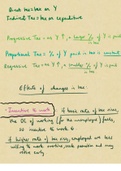 Direct tax : tax on Y
Indirect Tax : tax on expenditure
Progressive Tax = as Y ↑, a larger % of Y is paid
Proportional Tax = % of Y paid in tax is constant
Regressive Tax = as Y ↑, a smaller % of Y is paid
Effects of changes in tax
Incentive to work
if lower rate of inc tax,
the OC of working (for the unemployed) falls,
so incentive to work ↑
if higher rate of inc tax, employed are less
willing to work overtime, seek promotion and may
retire early